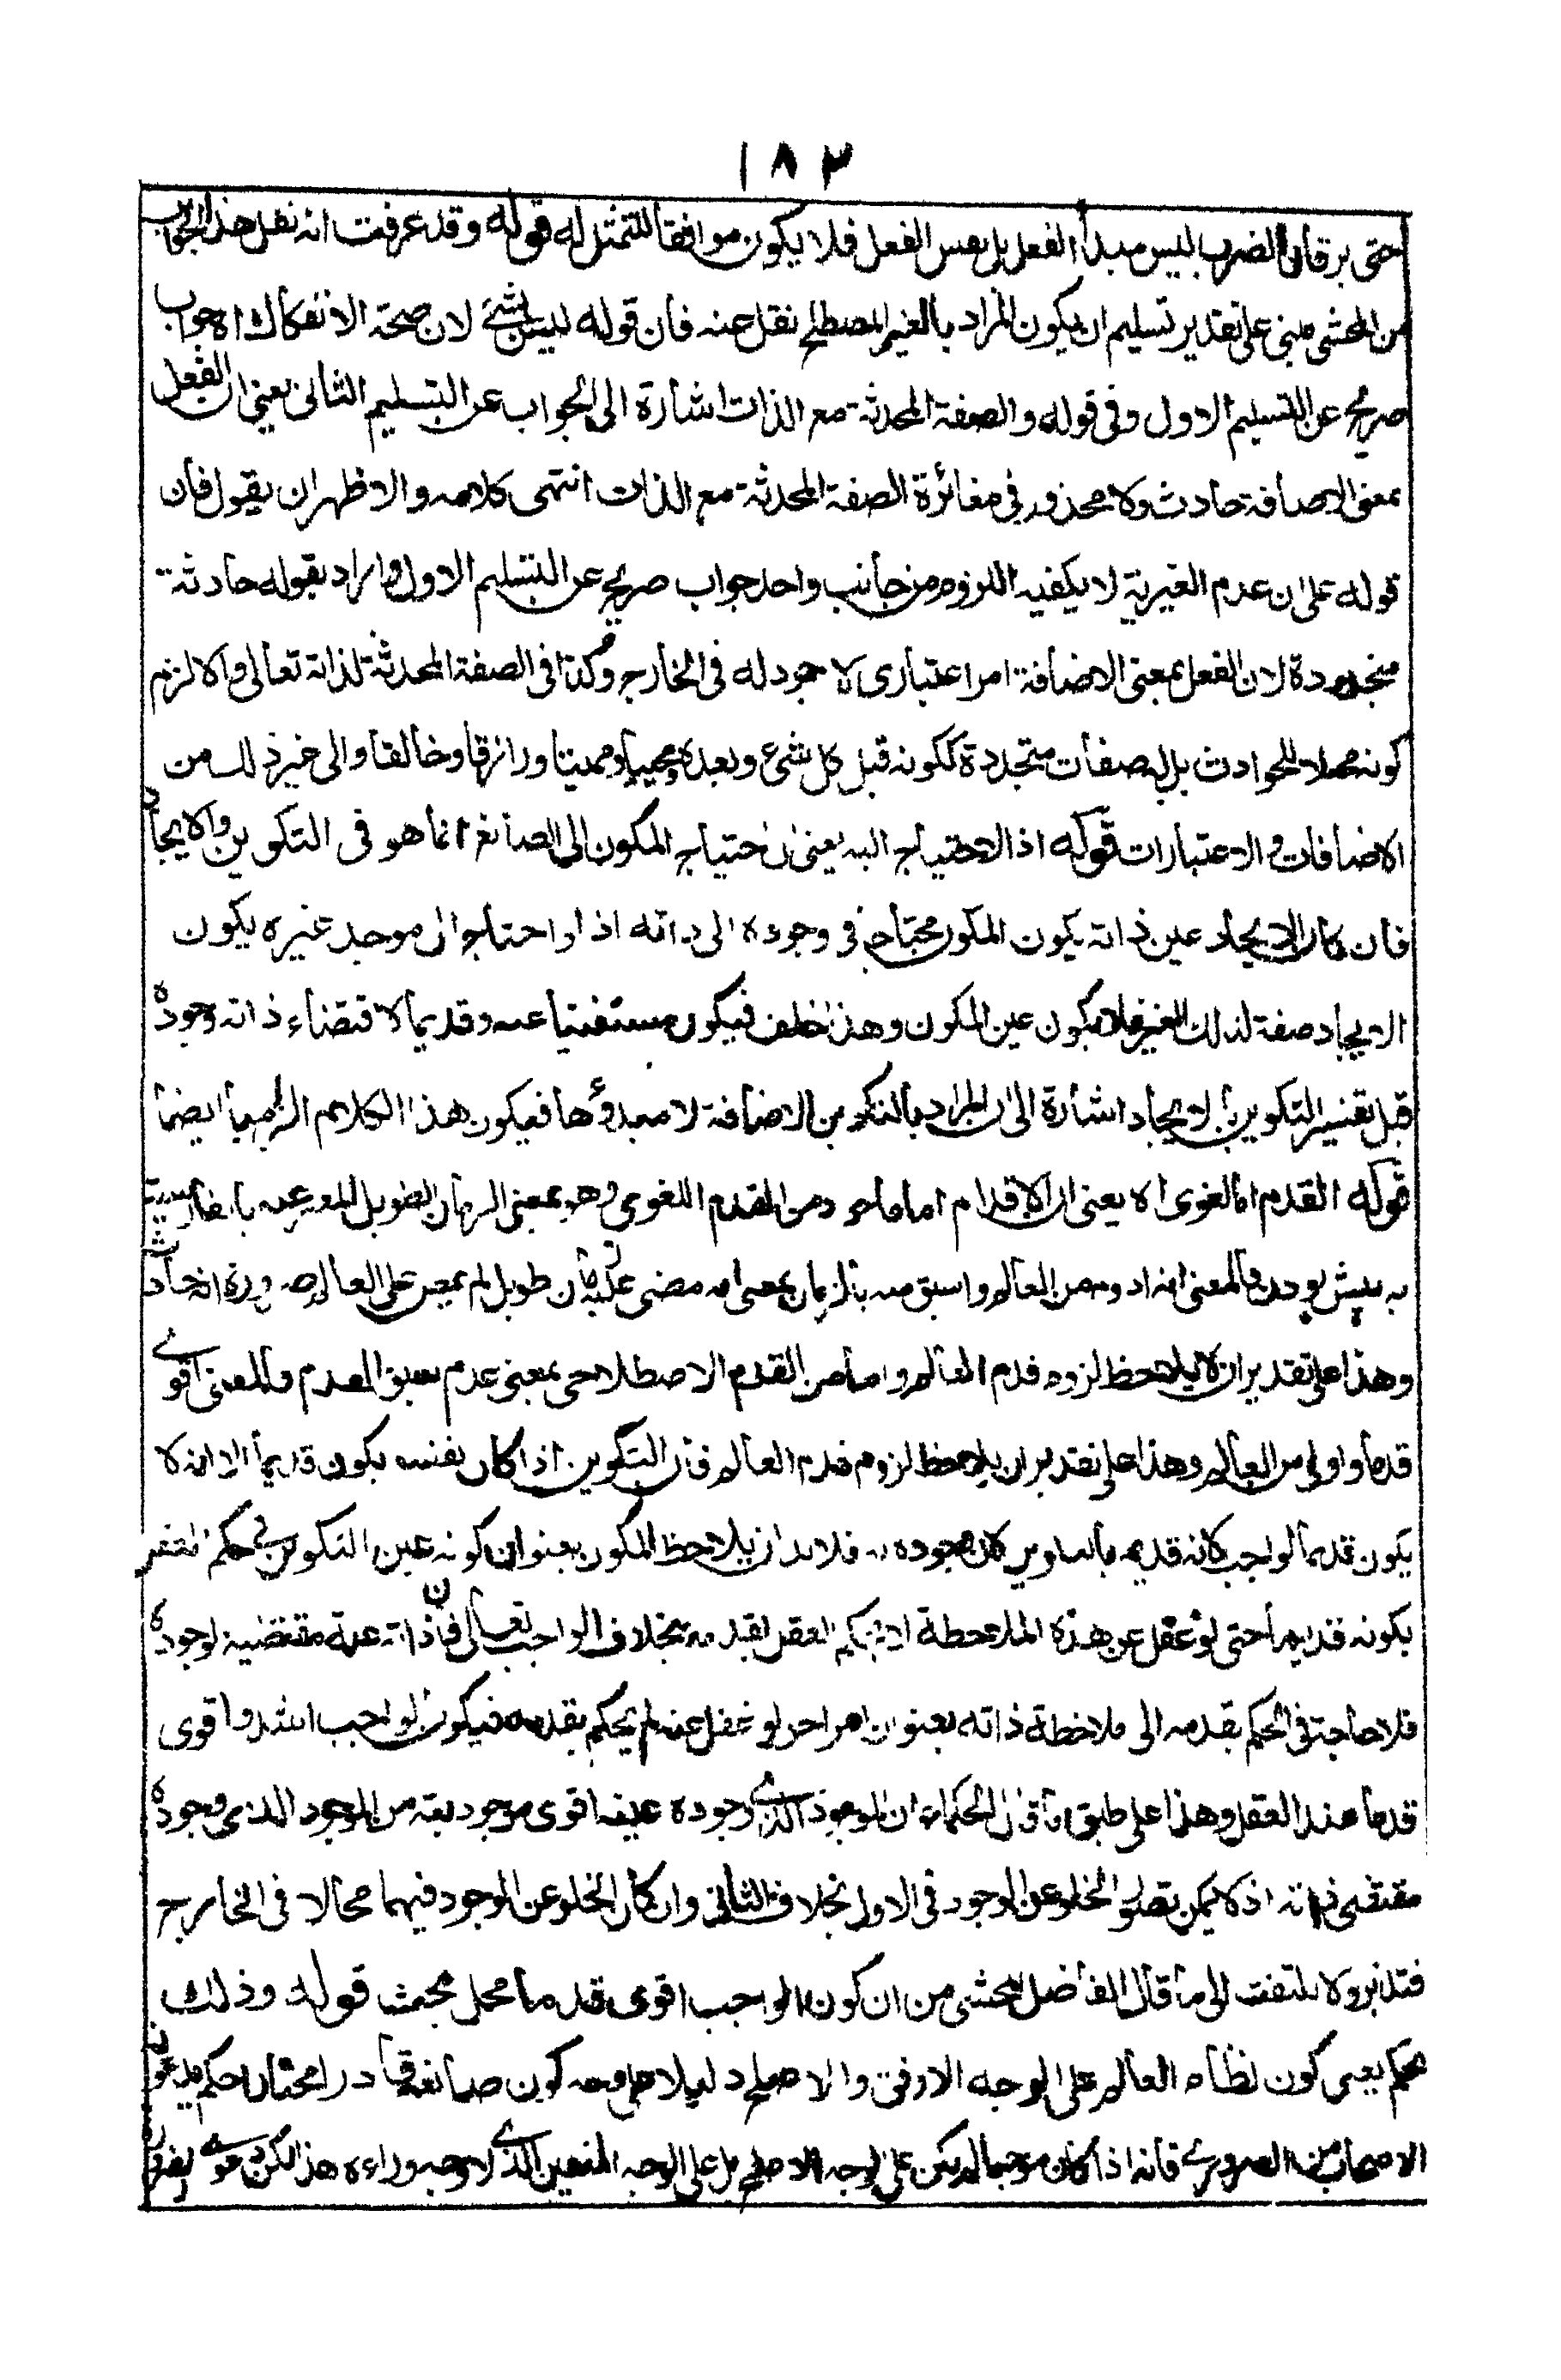 ١٨٢
حتى يرد بان الضرب ليس مبدأ الفعل بل نفس الفعل فلا يكون موافقا للتمثل له قوله وقد عرفت انه نقل هذا الجواب
من المحشى مبنى على تقدير تسليم ان يكون المراد بالغير المصطلح نقل عنه فان قوله ليس بشئ لان صحة الانفكاك اه جواب
صريح عن التسليم الاول وفى قوله والصفة المحدثة مع الذات اشارة الى الجواب عن التسليم الثانى يعنى ان الفعل
بمعنى الاضافة حادث ولا محذور فى مغائرة الصفة المحدثة مع الذات انتهى كلامه والاظهر ان يقول فان
قوله على ان عدم الغيرية لا يكفيه اللزوم من جانب واحد جواب صريح عن التسليم الاول واراد بقوله حادثة
متجددة لان الفعل بمعنى الاضافة امر اعتبارى لا وجود له فى الخارج وكذا فى الصفة المحدثة لذاته تعالى والا لزم
كونه محلا للحوادث بل له صفات متجددة ككونه قبل كل شئ وبعده ومحييا ومميتا ورازقا وخالقا والى غير ذلك من
الاضافات والاعتبارات قوله اذ الاحتياج اليه يعنى ان احتياج المكون الى الصانع انما هو فى التكوين والايجاد
فان كان الايجاد عين ذاته يكون المكون محتاجا فى وجوده الى ذاته اذ لو احتاج الى موجد غيره يكون
الايجاد صفة لذلك الغير فلا يكون عين المكون وهذا خلف فيكون مستغنيا عنه وقديما لاقتضاء ذاته وجوده
قبل تفسير التكوين بالايجاد اشارة الى ان المراد بالتكوين الاضافة لا مبدؤها فيكون هذا الكلام الزاميا ايضا
قوله القدم اما لغوى اه يعنى ان الاقدام اما ماخوذ من القدم اللغوى وهو بمعنى الزمان الطويل المعبر عنه بالفارسية
به پيش بودن فالمعنى انه اقدم من العالم واسبق منه بالزمان بمعنى انه مضى عليه زمان طويل لم يمض على العالم ضرورة انه حادث
وهذا على تقدير ان لا يلاحظ لزوم قدم العالم واما من القدم الاصطلاحى بمعنى عدم سبق العدم فالمعنى اقوى
قدما واولى من العالم وهذا على تقدير ان يلاحظ لزوم قدم العالم فان التكوين اذا كان بنفسه يكون قديما الا انه لا
يكون قديما كالواجب لانه قديم بالتكوين كان وجوده به فلا بد ان يلاحظ المكون بعنوان كونه عين التكوين حتى يحكم العقل
بكونه قديما حتى لو غفل عن هذه الملاحظة لم يحكم العقل بقدمه بخلاف الواجب تعالى فان ذاته علة مقتضية لوجوده
فلا حاجة فى الحكم بقدمه الى ملاحظة ذاته بعنوان امر اخر لو غفل عنه لم يحكم بقدمه فيكون الواجب اشد واقوى
قدما عند العقل وهذا على طبق ما قال الحكماء ان الموجود الذى وجوده عينه اقوى موجودية من الموجود الذى وجوده
مقتضى ذاته اذ لا يمكن تصور الخلو عن الوجود فى الاول بخلاف الثانى وان كان الخلو عن الوجود فيهما محالا فى الخارج
فتدبر ولا تلتفت الى ما قال الفاضل المحشى من ان كون الواجب اقوى قدما محل بحث قوله وذلك
يحكم يعنى كون نظام العالم على الوجه الاوفق والاصلح دليلا على كون صانعه قادرا مختارا حكم يدعون
فانه اذا كان موجبا لم يكن على الوجه الاصلح بل على الوجه المتعين الذى لا وجه وراءه هذا لكن دعوى